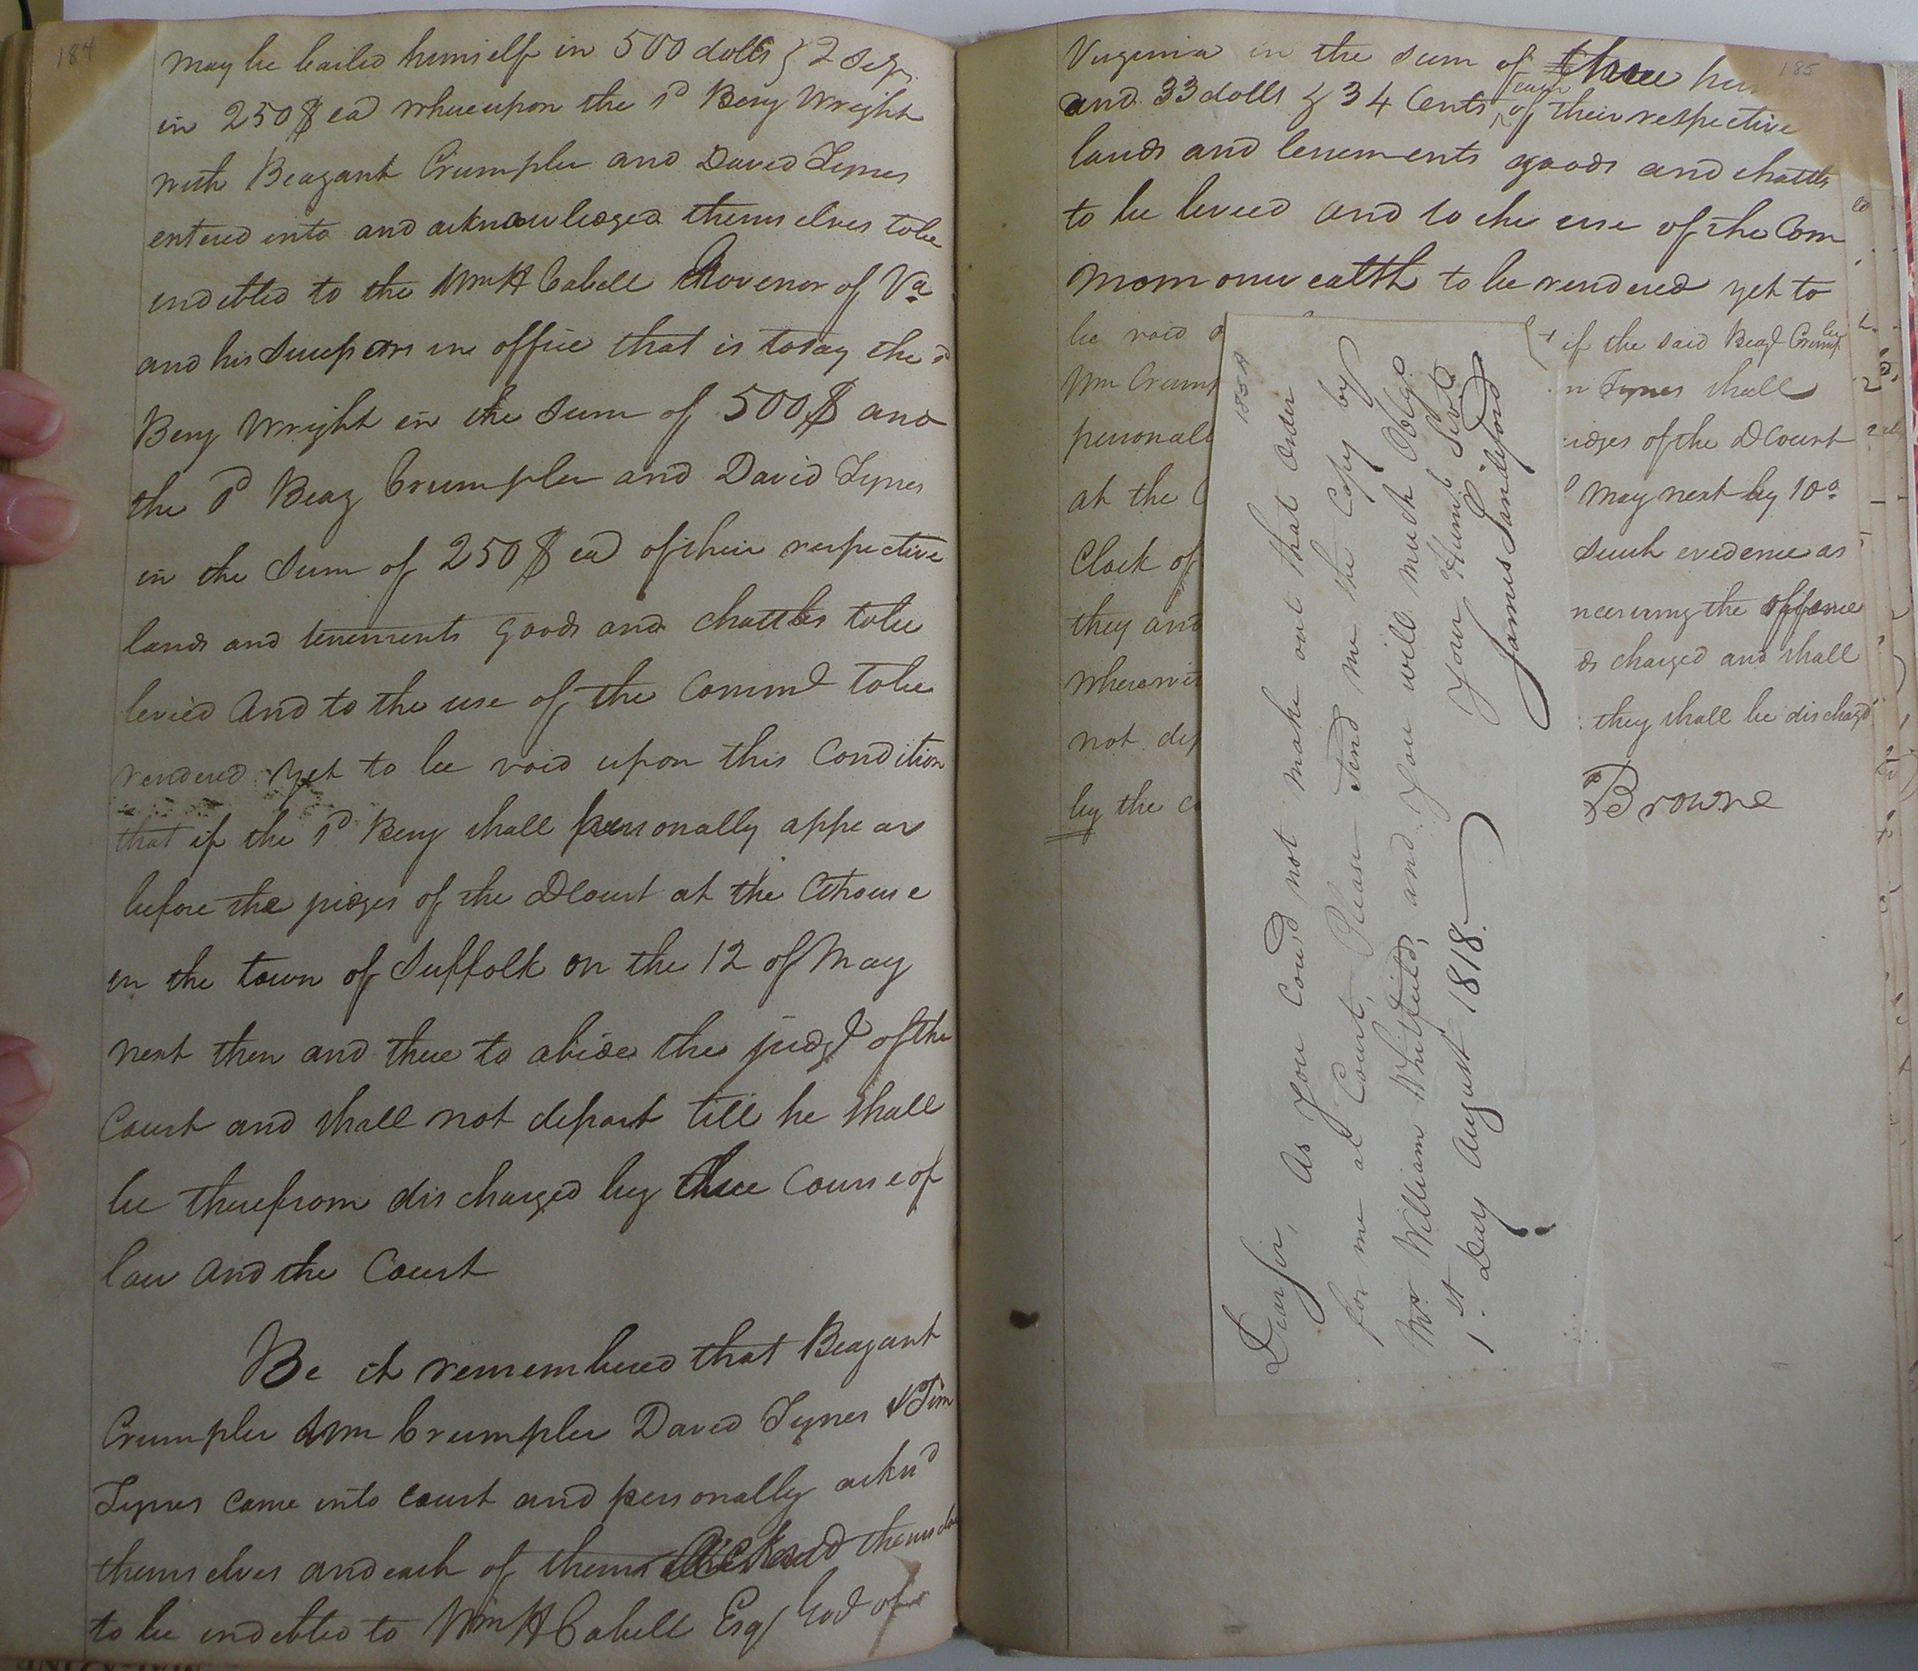 184
may be bailed himself in 500 dolls & 2
in 250$ ea whereupon the sd Benj Wright
with Beazant Crumpler and David Tynes
entered into and acknowledged themselves to be
indebted to the Wm H Cabell Govenor of Va
and his in office that is to say the sd
Benj Wright in the sum of 500$ and
the sd Beaz Crumpler and David Tynes
in the sum of 250$ ea of their respective
lands and tenements goods and chattles to be
levied and to the use of the Commd to be
rendered yet to be void upon this condition
that if the sd Benj shall personally appear
before the judges of the D Court at the Cthouse
in the town of Suffolk on the 12 of May
next then and there to abide the judgt of the
Court and shall not depart till he shall
be therefrom discharged by the course of
law and the Court
Be it remembered that Beazant
Crumpler Wm Crumpler David Tynes & Tim
Tynes came into court and personally acknd
themselves and each of them
to be indebted to Wm H Cabell Esqr Govr of
185
Virginia in the sum of three hun
and 33 dolls & 34 Cents each of their respective
lands and tenements goods and chattls
to be levied and to the use of the Com
monwealth to be rendered yet to
be void if the said Beazt Crumpler
Wm Crump n Tynes shall
personall udges of the D Court
at the C May next by 10 o
Clock of such evidence as
they and ncerning the offence
wherewit ds charged and shall
not dep they shall be dischargd
by the co
Browne
Dear Sir, As You Could not make out that order
for me at Court, Please Send me the Copy by
Mr William Whitfield, and You will much Oblige
1st Day August 1818. Your Humb Servt
James Sandeford